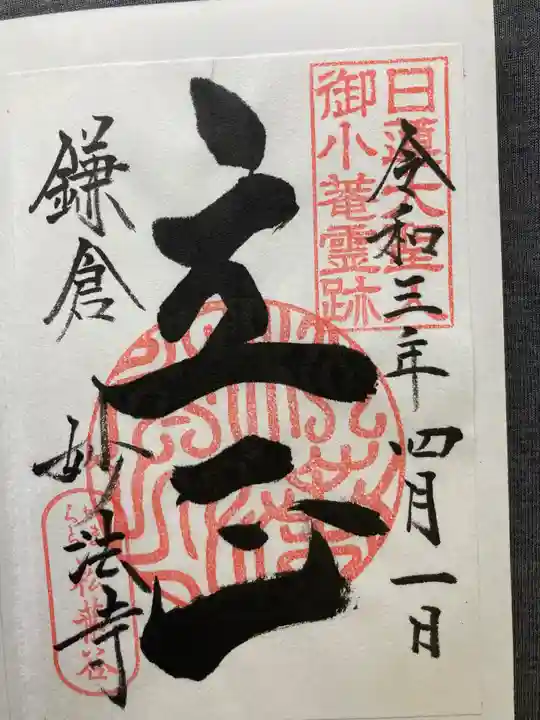 日蓮大聖
御小菴霊跡
令和三年四月一日
立正
鎌倉
妙法寺
松葉谷